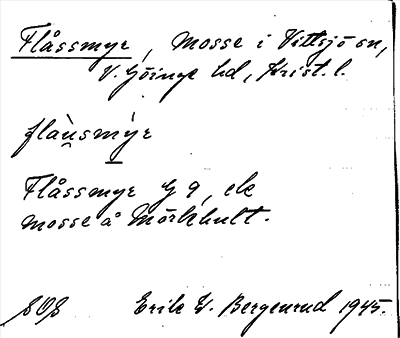 Flåssmyr, mosse i Vittsjö sn,
V. Göinge hd, Krist. l.
flau̯smyr
Flåssmyr G 9, ek
mosse å Mörkhult.
SOS Erik W. Bergenrud 1945.